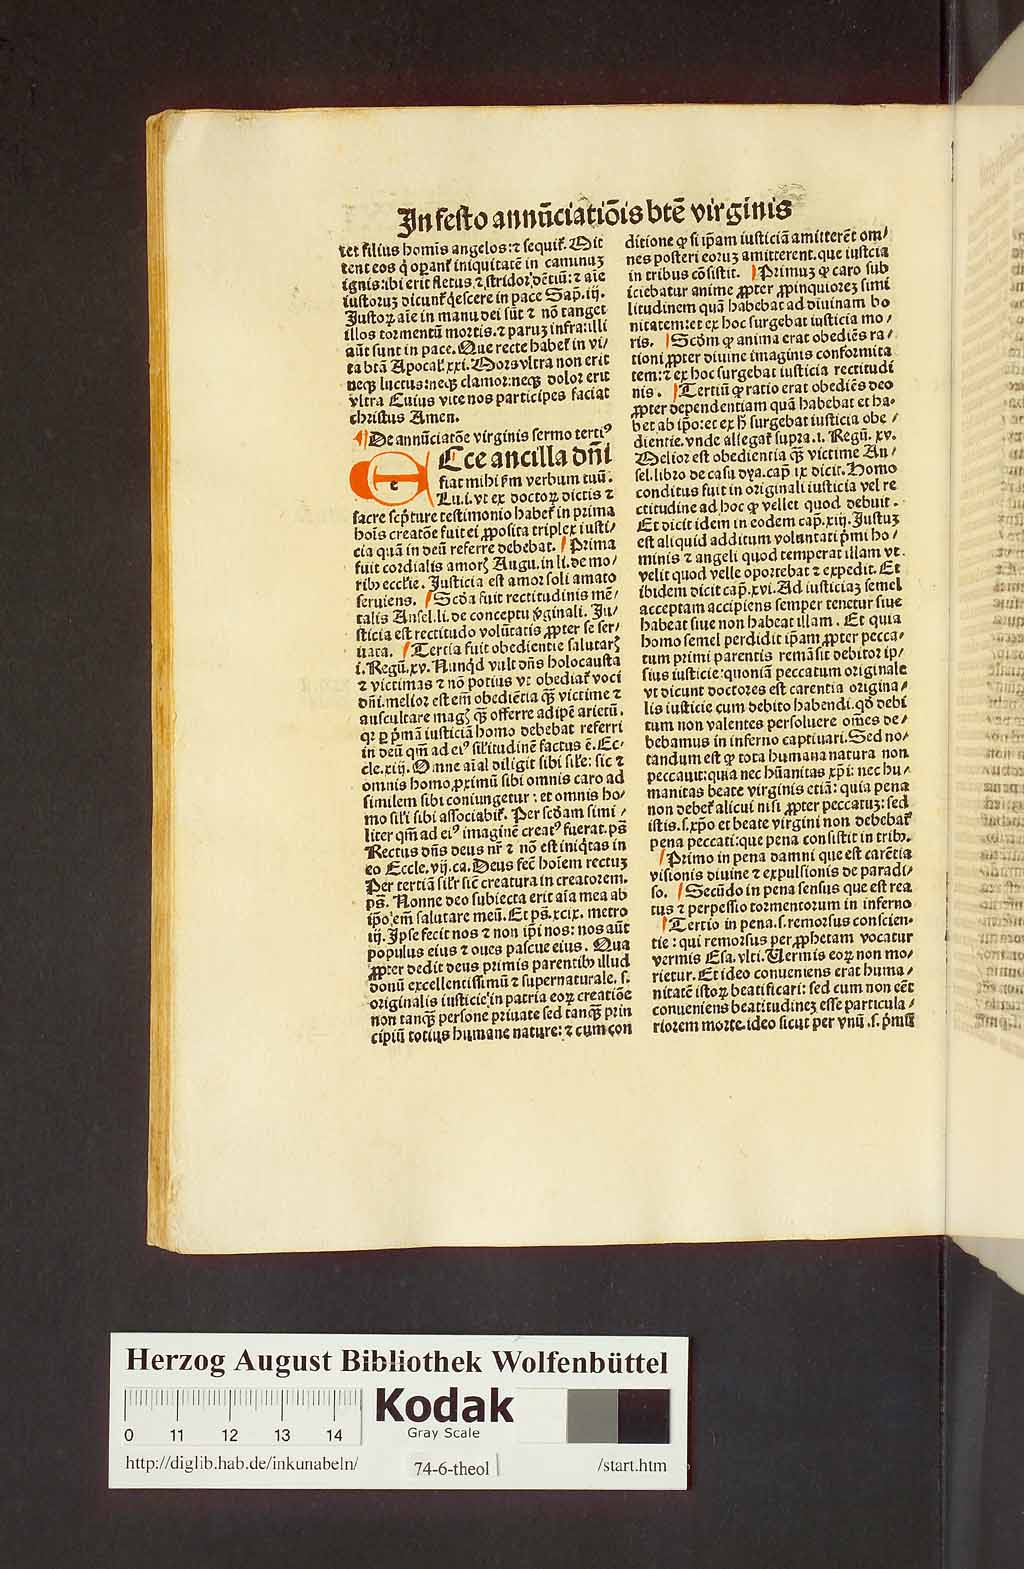 In festo annūciatiōis btē virginis
tet filius homis angelos: ⁊ sequit̃. Mit
tent eos q̇ operant̃ iniquitatē in caminuʒ
ignis: ibi erit fletus ⁊ stridor dētiū: ⁊ aīe
iustoruʒ dicunt̃ q̇escere in pace Sap. iij.
Justoꝝ aīe in manu dei sūt ⁊ nō tanget
illos tormentū mortis. ⁊ paruʒ infra: illi
aūt sunt in pace. Que recte habet̃ in vi/
ta btā Apocal̃. xxi. Mors vltra non erit
neqꝫ luctus: neqꝫ clamor: neqꝫ dolor erit
vltra Cuius vite nos participes faciat
christus Amen.
¶ De annūciatōe virginis sermo terti⁹
ECce ancilla dn̄i
fiat mihi ẜm verbum tuū.
Lu. i. vt ex doctoꝝ dictis ⁊
sacre sc̃pture testimonio habet̃ in prima
hoīs creatōe fuit ei ꝓposita triplex iusti/
cia quā in deū referre debebat. Prima
fuit cordialis amorꝭ Augu. in li. de mo/
ribꝰ eccl̃ie. Justicia est amor soli amato
seruiens. Scḋa fuit rectitudinis mē/
talis Ansel. li. de conceptu v̓ginali. Ju/
sticia est rectitudo volūtatis ꝓpter se ser/
uata. Tertia fuit obedientie salutarꝭ
i. Regū. xv. Nunqḋ vult dn̄s holocausta
⁊ victimas ⁊ nō potius vt obediat̃ voci
dn̄i. melior est em̄ obediētia qꝫ̄ victime ⁊
auscultare magꝭ qꝫ̄ offerre adipē arietū.
qꝛ ꝑ pͥmā iusticiā homo debebat referri
in deū qm̄ ad ei⁹ sil̓itudinē factus ē. Ec/
cle. xiij. Omne aīal diligit sibi sil̓e: sic ⁊
omnis homo ꝓximū sibi omnis caro ad
similem sibi coniungetur: et omnis ho/
mo sil̓i sibi associabit̃. Per scḋam simi/
liter qm̄ ad ei⁹ imaginē creat⁹ fuerat. ps̄
Rectus dn̄s deus nr̄ ⁊ nō est iniq̇tas in
eo Eccle. vij. ca. Deus fec̄ hoīem rectuʒ
Per tertiā sil̓r sic̄ creatura in creatorem.
ps̄. Nonne deo subiecta erit aīa mea ab
ip̄o em̄ salutare meū. Et ps̄. xcix. metro
iij. Ipse fecit nos ⁊ non ip̄i nos: nos aūt
populus eius ⁊ oues pascue eius. Qua
ꝓpter dedit deus primis parentibꝰ illud
donū excellentissimū ⁊ supernaturale. s.
originalis iusticie in patria eoꝝ creatiōe
non tanqꝫ̄ persone priuate sed tanqꝫ̄ prin
cipiū totius humane nature: ⁊ cum con
ditione ꝙ si ip̄am iusticiā amitterēt om/
nes posteri eoruʒ amitterent. que iusticia
in tribus cōsistit. Primuʒ ꝙ caro sub
iciebatur anime ꝓpter ꝓpinquioreʒ simi
litudinem quā habebat ad diuinam bo
nitatem: et ex hoc surgebat iusticia mo/
ris. Scḋm ꝙ anima erat obediēs ra/
tioni ꝓpter diuine imaginis conformita
tem: ⁊ ex hoc surgebat iusticia rectitudi
nis. Tertiū ꝙ ratio erat obediēs deo
ꝓpter dependentiam quā habebat et ha/
bet ab ip̄o: et ex h̄ surgebat iusticia obe/
dientie. vnde allegat̃ supra. i. Regū. xv.
Melior est obedientia qꝫ̄ victime An/
sel. libro de casu dya. cap̄ ix dicit. Homo
conditus fuit in originali iusticia vel re
ctitudine ad hoc ꝙ vellet quod debuit.
Et dicit idem in eodem cap̄. xiij. Justuʒ
est aliquid additum voluntati pͥmi ho/
minis ⁊ angeli quod temperat illam vt
velit quod velle oportebat ⁊ expedit. Et
ibidem dicit cap̄. xvi. Ad iusticiaʒ semel
acceptam accipiens semper tenetur siue
habeat siue non habeat illam. Et quia
homo semel perdidit ip̄am ꝓpter pecca/
tum primi parentis remāsit debitor ip/
sius iusticie: quoniā peccatum originale
vt dicunt doctores est carentia origina/
lis iusticie cum debito habendi. qḋ debi
tum non valentes persoluere om̄es de/
bebamus in inferno captiuari. Sed no/
tandum est ꝙ tota humana natura non
peccauit: quia nec hūanitas xp̄i: nec hu/
manitas beate virginis etiā: quia pena
non debet̃ alicui nisi ꝓpter peccatuʒ: sed
istis. s. xp̄o et beate virgini non debebat̃
pena peccati: que pena consistit in tribꝰ.
Primo in pena damni que est carētia
visionis diuine ⁊ expulsionis de paradi/
so. Secūdo in pena sensus que est rea
tus ⁊ perpessio tormentorum in inferno
Tertio in pena. s. remorsus conscien/
tie: qui remorsus per ꝓphetam vocatur
vermis Esa. vlti. Uermis eoꝝ non mo/
rietur. Et ideo conueniens erat huma/
nitatē istoꝝ beatificari: sed cum non eēt
conueniens beatitudineʒ esse particula/
riorem morte. ideo sicut per vnū .s. pͥmū
Herzog August Bibliothek Wolfenbüttel
Kodak
Gray Scale
0 11 12 13 14
http://diglib.hab.de/inkunabeln/ 74-6-theol /start.htm